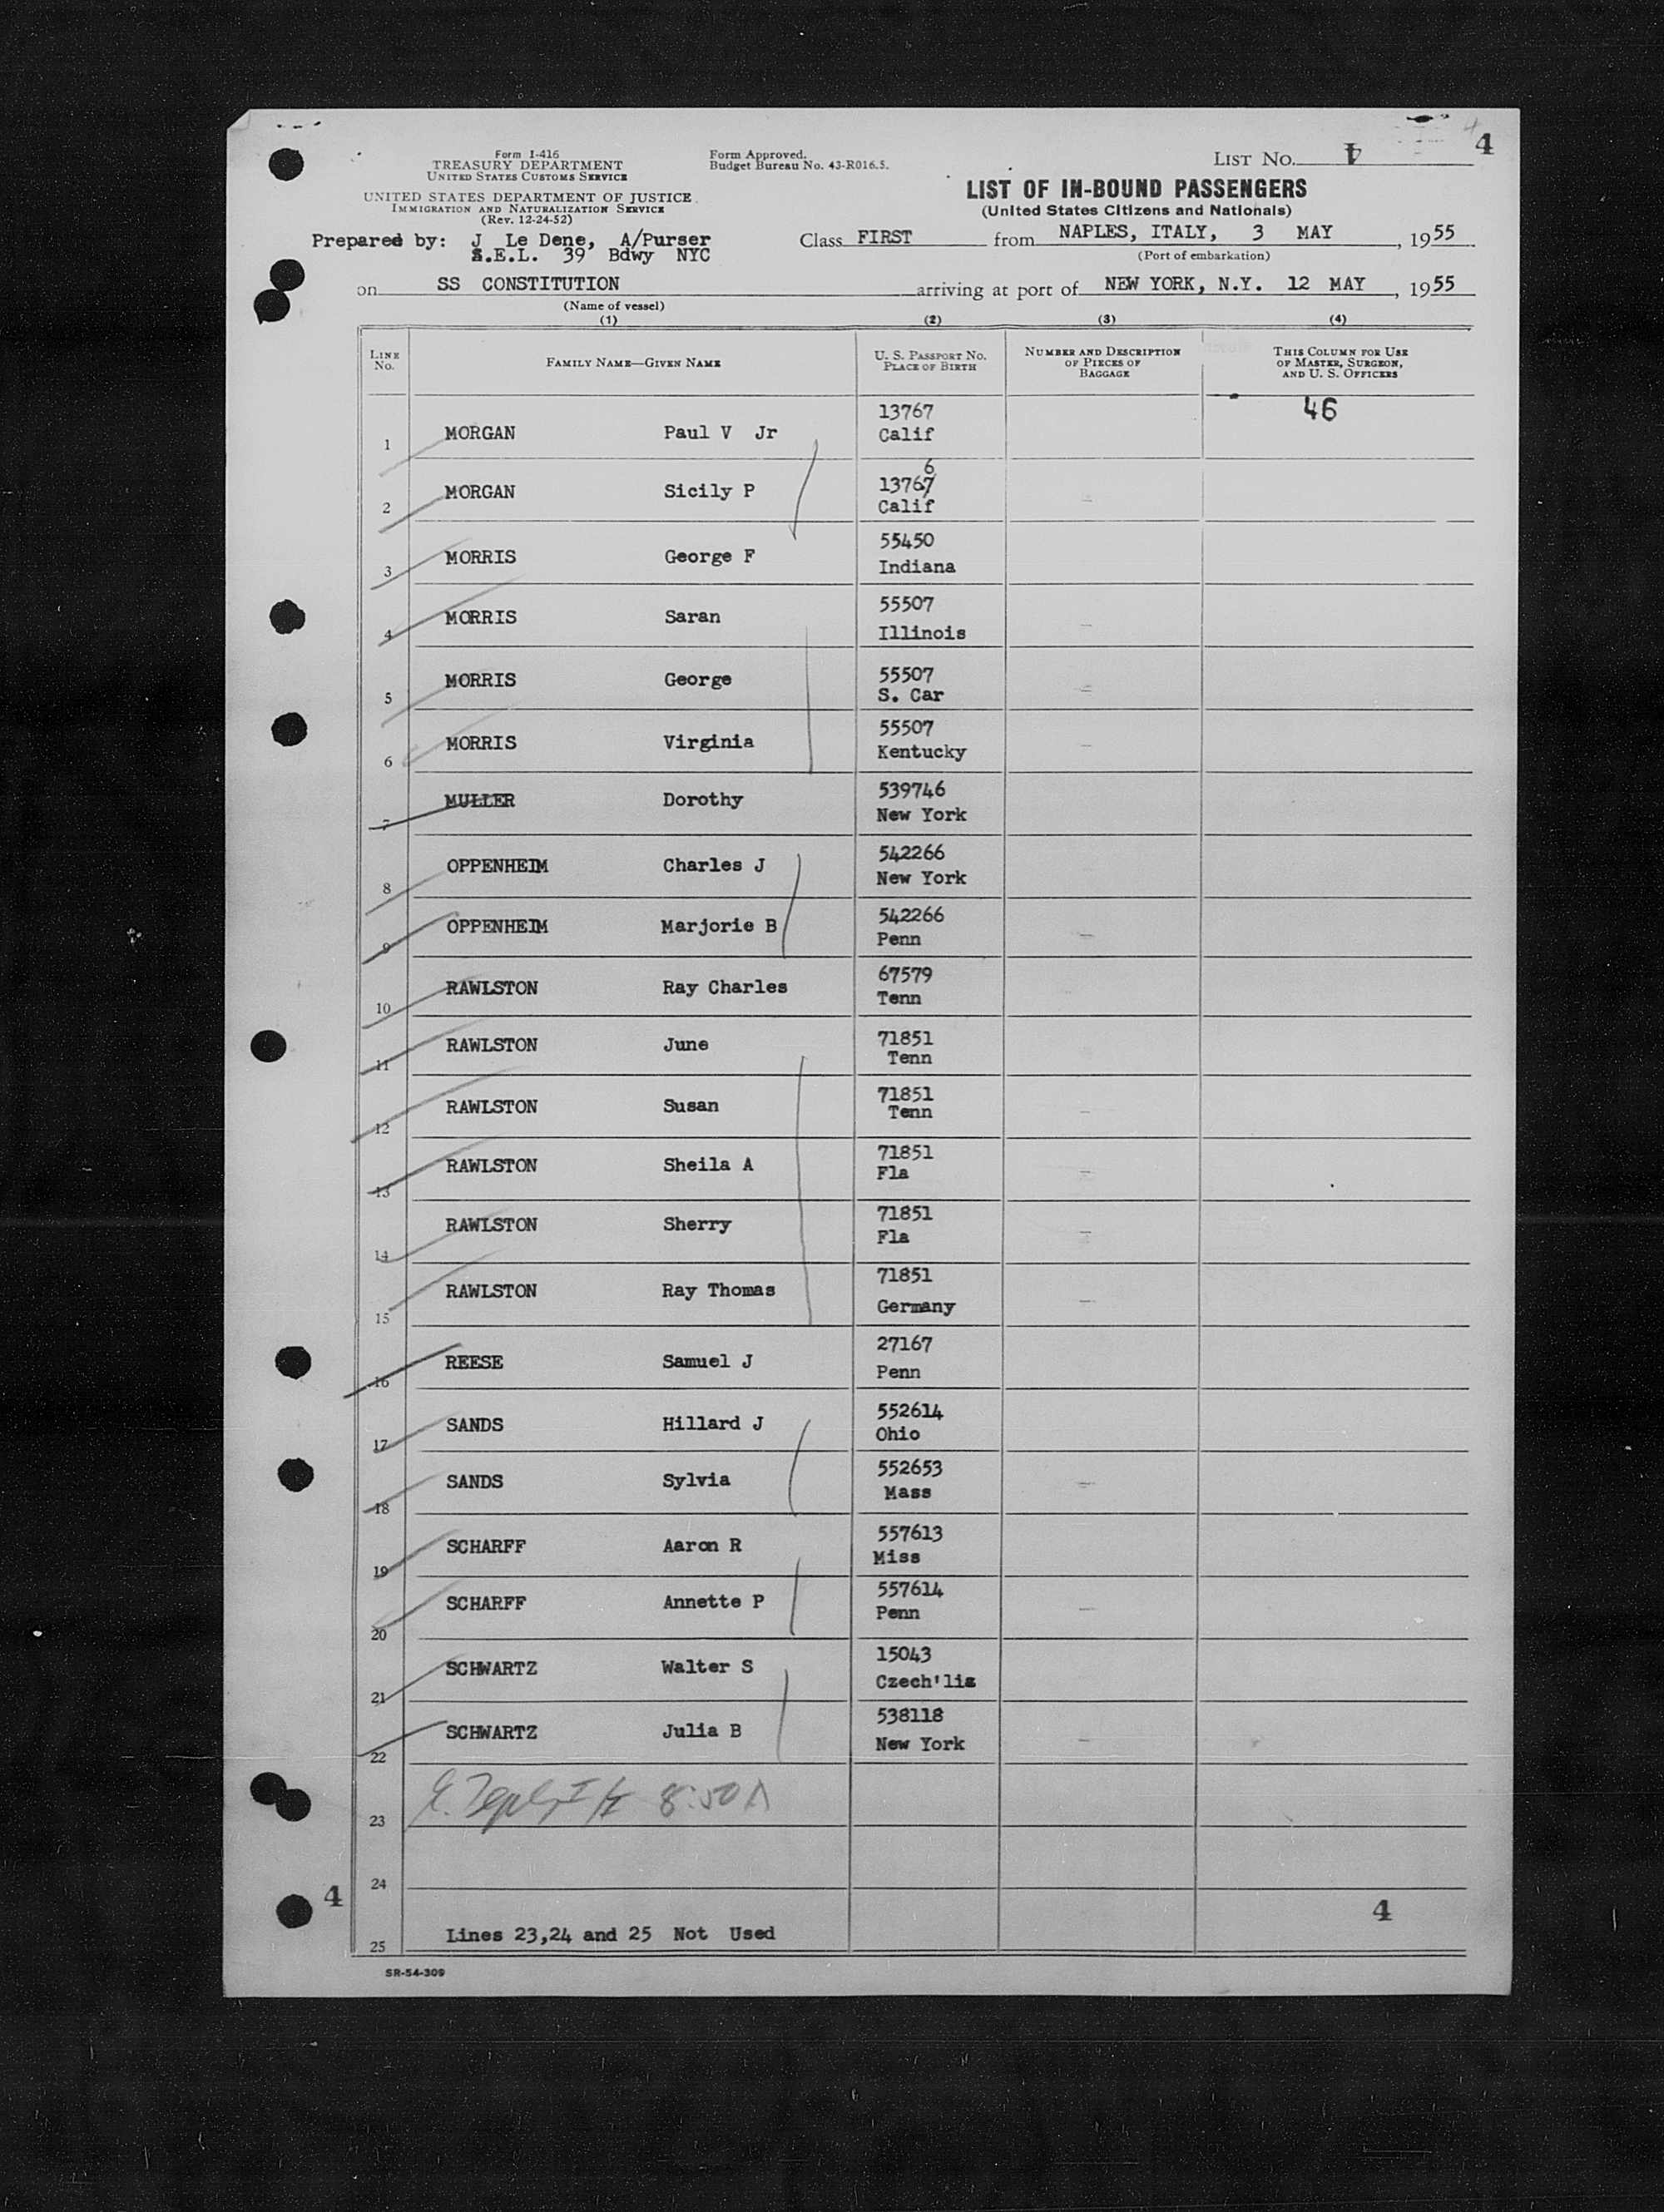 Form I-416
TREASURY DEPARTMENT
UNITED STATES CUSTOMS SERVICE
UNITED STATES DEPARTMENT OF JUSTICE
IMMIGRATION AND NATURALIZATION SERVICE
(Rev. 12-24-52)
Form Approved.
Budget Bureau No. 43-R016.5.
LIST No. 4
4
LIST OF IN-BOUND PASSENGERS
(United States Citizens and Nationals)
Prepared by: J Le Dene, A/Purser
S.E.L. 39 Bdwy NYC
Class FIRST from NAPLES, ITALY, 3 MAY, 1955
(Port of embarkation)
on SS CONSTITUTION arriving at port of NEW YORK, N.Y. 12 MAY, 1955
(Name of vessel)
(1) (2) (3) (4)
LINE No. FAMILY NAME—GIVEN NAME U. S. PASSPORT NO. PLACE OF BIRTH NUMBER AND DESCRIPTION OF PIECES OF BAGGAGE THIS COLUMN FOR USE OF MASTER, SURGEON, AND U. S. OFFICERS
46
1 MORGAN Paul V Jr 13767 Calif
2 MORGAN Sicily P 13767 6 Calif
3 MORRIS George F 55450 Indiana
4 MORRIS Saran 55507 Illinois
5 MORRIS George 55507 S. Car
6 MORRIS Virginia 55507 Kentucky
7 MULLER Dorothy 539746 New York
8 OPPENHEIM Charles J 542266 New York
9 OPPENHEIM Marjorie B 542266 Penn
10 RAWLSTON Ray Charles 67579 Tenn
11 RAWLSTON June 71851 Tenn
12 RAWLSTON Susan 71851 Tenn
13 RAWLSTON Sheila A 71851 Fla
14 RAWLSTON Sherry 71851 Fla
15 RAWLSTON Ray Thomas 71851 Germany
16 REESE Samuel J 27167 Penn
17 SANDS Hillard J 552614 Ohio
18 SANDS Sylvia 552653 Mass
19 SCHARFF Aaron R 557613 Miss
20 SCHARFF Annette P 557614 Penn
21 SCHWARTZ Walter S 15043 Czech'lia
22 SCHWARTZ Julia B 538118 New York
23 8:50 A
24
4 4
25 Lines 23,24 and 25 Not Used
SR-54-309